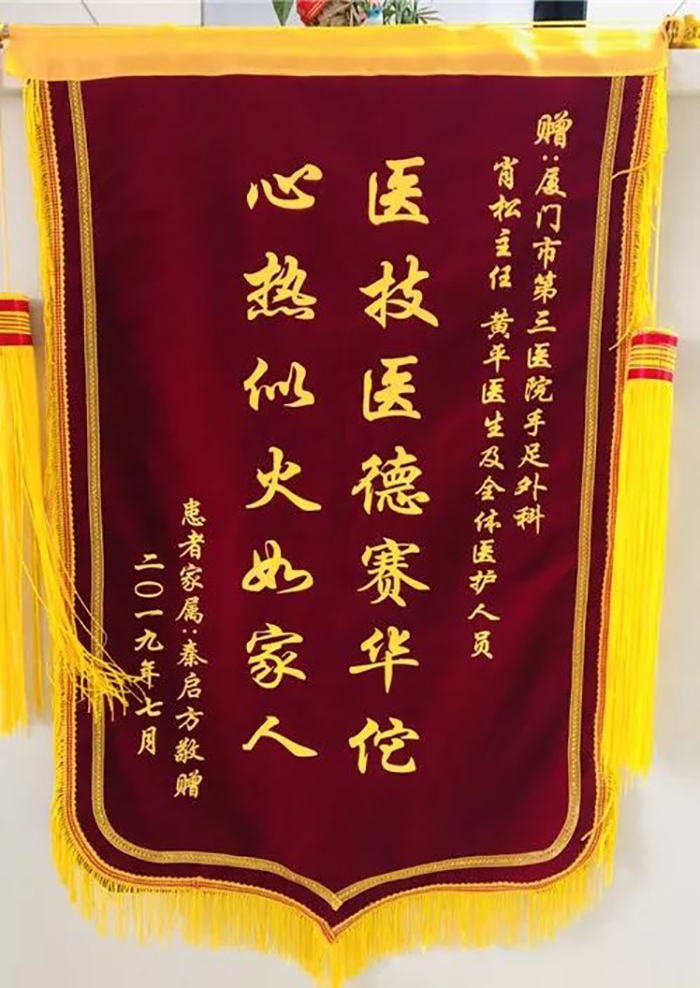 赠:厦门市第三医院手足外科
肖松主任 黄平医生及全体医护人员
医技医德赛华佗
心热似火如家人
患者家属:秦启方敬赠
二〇一九年七月